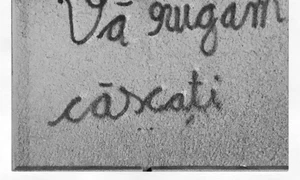 Vă rugăm
căscați